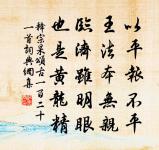 以平報不平
王法本無親
臨濟雖明眼
也是黃龍精
釋宗杲頌古一百二十
一首詞典網集